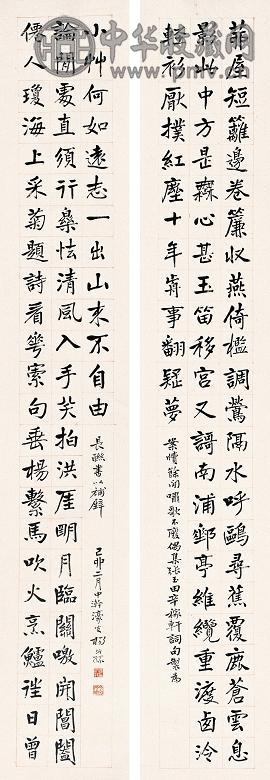 茆屋短籬邊卷簾收燕倚檻調鶯隔水呼鷗尋蕉覆鹿蒼雲息
影此中方是無心甚玉笛移宮又謌南浦郵亭維纜重渡西泠
輕衫厭撲紅塵十年前事翻疑夢
案牘餘閒嘯歌不廢偶集張玉田辛稼軒詞句製為
僊人瓊海上采菊題詩看花索句垂楊繫馬吹火烹鱸往日曾
論閒處直須行樂怯清風入手笑拍洪厓明月臨關噭開閶闔
小艸何如遠志一出山來不自由
長聯書以補壁
己卯二月中澣濠叟楊沂孫